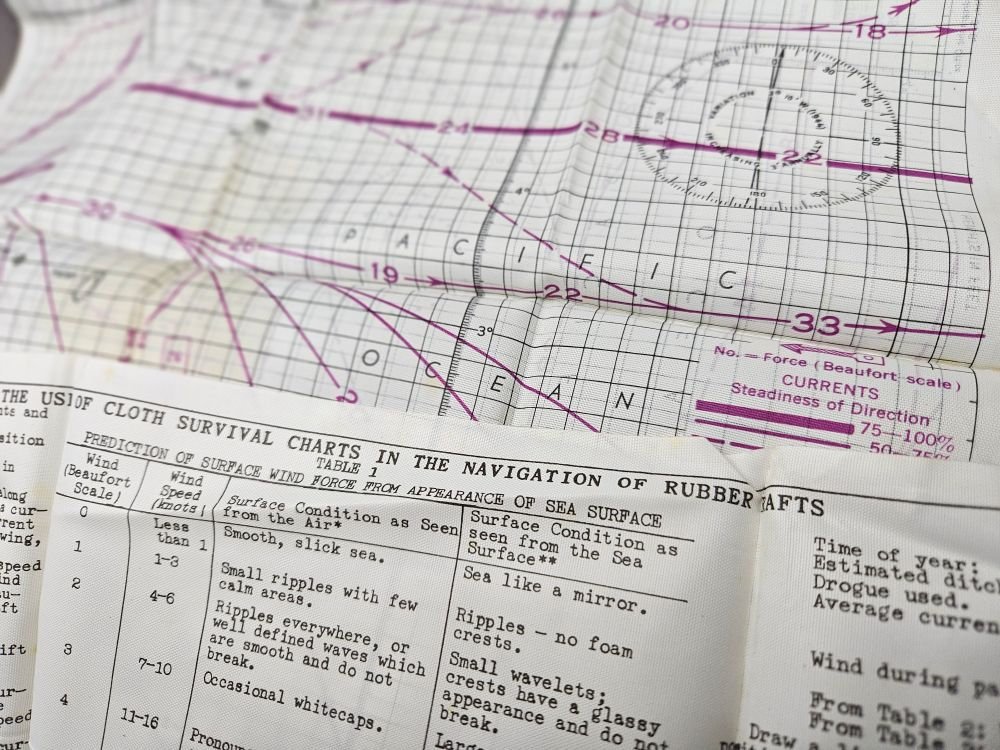 20
18
31
24
28
22
30
26
4°
P A C I F I C
19
22
33
3°
O C E A N
2
No. = Force (Beaufort scale)
CURRENTS
Steadiness of Direction
75—100%
50—75%
VARIATION
INCREASING
ANNUALLY
THE US OF CLOTH SURVIVAL CHARTS IN THE NAVIGATION OF RUBBER RAFTS
TABLE 1
PREDICTION OF SURFACE WIND FORCE FROM APPEARANCE OF SEA SURFACE
Wind (Beaufort Scale)
Wind Speed (knots)
Surface Condition as Seen from the Air*
Surface Condition as seen from the Sea Surface**
0
Less than 1
Smooth, slick sea.
Sea like a mirror.
1
1-3
Small ripples with few calm areas.
Ripples — no foam crests.
2
4-6
Ripples everywhere, or well defined waves which are smooth and do not break.
Small wavelets; crests have a glassy appearance and do not break.
3
7-10
Occasional whitecaps.
4
11-16
Time of year:
Estimated
Drogue used.
Average
Wind during
From Table 2:
From Table
Draw
and
sition
in
along
speed